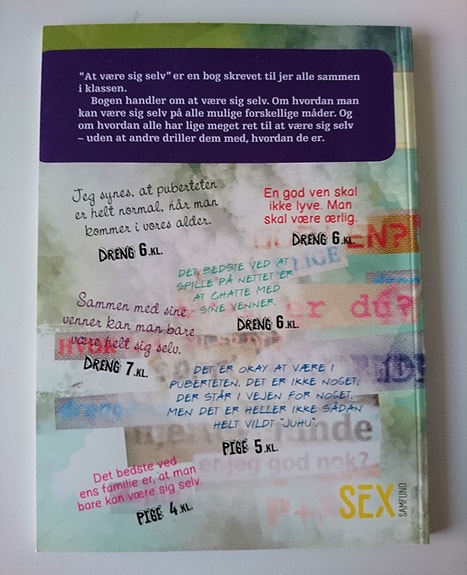 "At være sig selv" er en bog skrevet til jer alle sammen
i klassen.
Bogen handler om at være sig selv. Om hvordan man
kan være sig selv på alle mulige forskellige måder. Og
om hvordan alle har lige meget ret til at være sig selv
– uden at andre driller dem med, hvordan de er.
Jeg synes, at puberteten
er helt normal, når man
kommer i vores alder.
DRENG 6.KL.
En god ven skal
ikke lyve. Man
skal være ærlig.
DRENG 6.KL.
DET BEDSTE VED AT
SPILLE PÅ NETTET ER
AT CHATTE MED
SINE VENNER.
DRENG 6.KL.
Sammen med sine
venner kan man bare
være helt sig selv.
DRENG 7.KL.
DET ER OKAY AT VÆRE I
PUBERTETEN. DET ER IKKE NOGET,
DER STÅR I VEJEN FOR NOGET.
MEN DET ER HELLER IKKE SÅDAN
HELT VILDT "JUHU".
PIGE 5.KL.
Det bedste ved
ens familie er, at man
bare kan være sig selv.
PIGE 4.KL.
EN?
LIGE
er du?
nde
er jeg god nok?
P+
SEX
SAMFUND